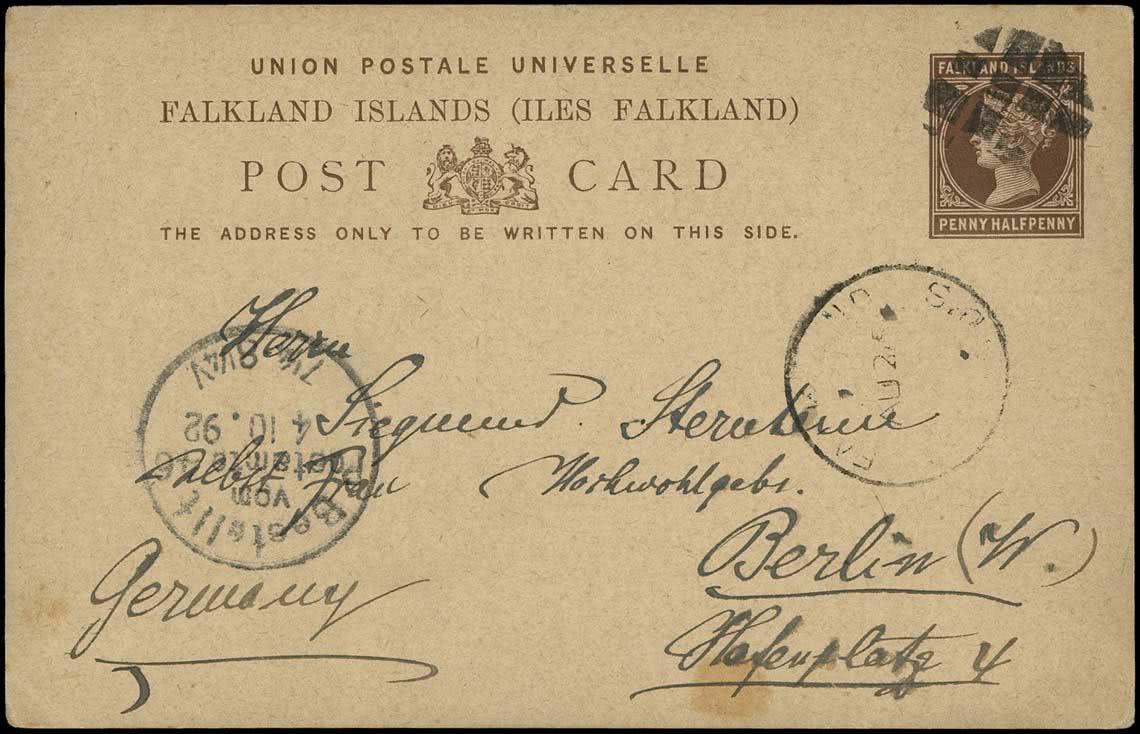 UNION POSTALE UNIVERSELLE
FALKLAND ISLANDS (ILES FALKLAND)
POST CARD
THE ADDRESS ONLY TO BE WRITTEN ON THIS SIDE.
FALKLAND ISLANDS
PENNY HALFPENNY
Herrn
Siegmund
Frau Hochwohlgebr.
Berlin (W.)
Hafenplatz 4
Germany
Bestellt
vom
Postamte
4 10. 92